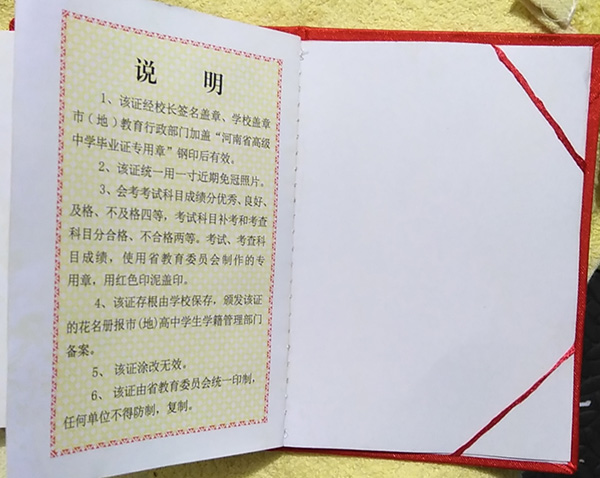 说 明
1、该证经校长签名盖章、学校盖章
市（地）教育行政部门加盖“河南省高级
中学毕业证专用章”钢印后有效。
2、该证统一用一寸近期免冠照片。
3、会考考试科目成绩分优秀、良好、
及格、不及格四等，考试科目补考和考查
科目分合格、不合格两等。考试、考查科
目成绩，使用省教育委员会制作的专
用章，用红色印泥盖印。
4、该证存根由学校保存，颁发该证
的花名册报市(地)高中学生学籍管理部门
备案。
5、 该证涂改无效。
6、 该证由省教育委员会统一印制，
任何单位不得防制，复制。